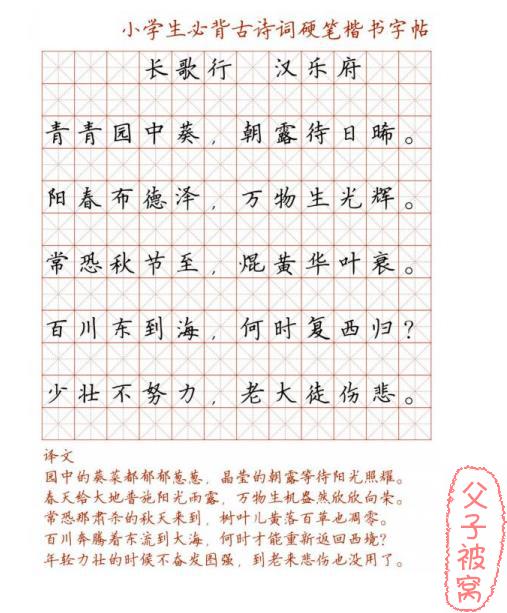 小学生必背古诗词硬笔楷书字帖
长歌行 汉乐府
青青园中葵，朝露待日晞。
阳春布德泽，万物生光辉。
常恐秋节至，焜黄华叶衰。
百川东到海，何时复西归？
少壮不努力，老大徒伤悲。
译文
园中的葵菜都郁郁葱葱，晶莹的朝露等待阳光照耀。
春天给大地普施阳光雨露，万物生机盎然欣欣向荣。
常恐那肃杀的秋天来到，树叶儿黄落百草也凋零。
百川奔腾着东流到大海，何时才能重新返回西境？
年轻力壮的时候不奋发图强，到老来悲伤也没用了。
父子被窝